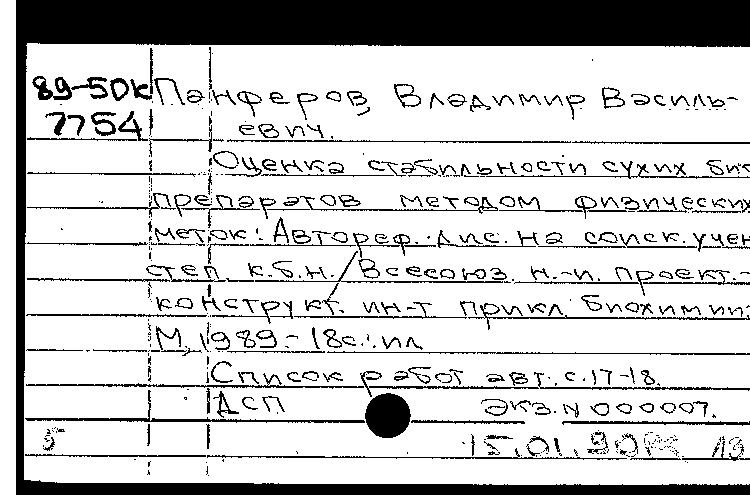 89-50к Панферов, Владимир Василь-
7754 евич.
Оценка стабильности сухих био
препаратов методом физических
меток: Автореф. дис. на соиск. учен
степ. к.б.н. / Всесоюз. н.-и. проект.-
конструкт. ин-т прикл. биохимии.
М, 1989.- 18с.: ил
Список работ авт.: с.17-18.
ДСП Экз. N 000007.
5 15.01.90 19